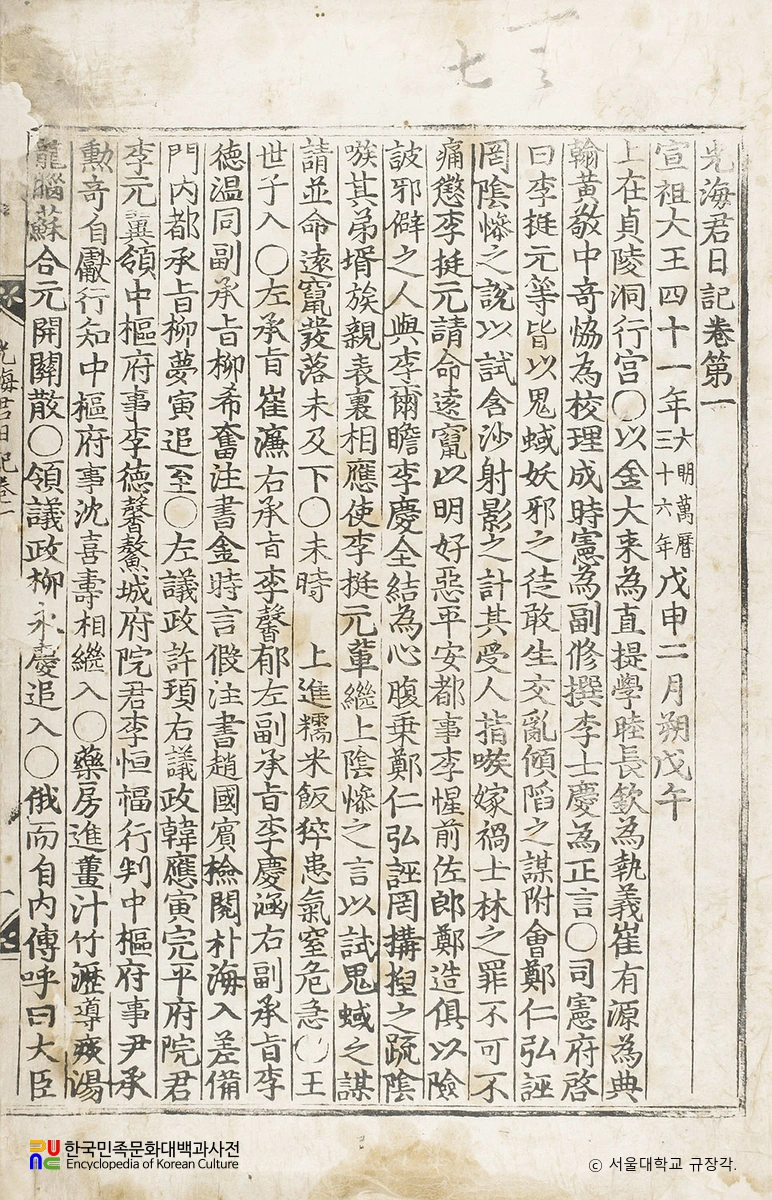 七 三
光海君日記卷第一
宣祖大王四十一年大明萬曆三十六年戊申二月朔戊午
上在貞陵洞行宮〇以金大來為直提學睦長欽為執義崔有源為典
翰黃敬中奇恊為校理成時憲為副修撰李士慶為正言〇司憲府啓
曰李挺元等皆以鬼蜮妖邪之徒敢生交亂傾陷之謀附會鄭仁弘誣
罔陰慘之說以試含沙射影之計其受人指嗾嫁禍士林之罪不可不
痛懲李挺元請命遠竄以明好惡平安都事李惺前佐郎鄭造俱以險
詖邪僻之人與李爾瞻李慶全結為心腹乗鄭仁弘誣罔搆捏之䟽陰
嗾其弟壻族親表裏相應使李挺元軰繼上陰慘之言以試鬼蜮之謀
請並命遠竄發落未及下〇未時 上進糯米飯猝患氣窒危急〇王
世子入〇左承旨崔濂右承旨李馨郁左副承旨李慶涵右副承旨李
德溫同副承旨柳希奮注書金時言假注書趙國賓檢閱朴海入差備
門內都承旨柳夢寅追至〇左議政許頊右議政韓應寅完平府院君
李元翼領中樞府事李德馨鰲城府院君李恒福行判中樞府事尹承
勲奇自獻行知中樞府事沈喜壽相繼入〇藥房進薑汁竹瀝導痰湯
龍腦蘇合元開關散〇領議政柳永慶追入〇俄而自內傳呼曰大臣
光海君日記卷一
한국민족문화대백과사전
Encyclopedia of Korean Culture
ⓒ 서울대학교 규장각.